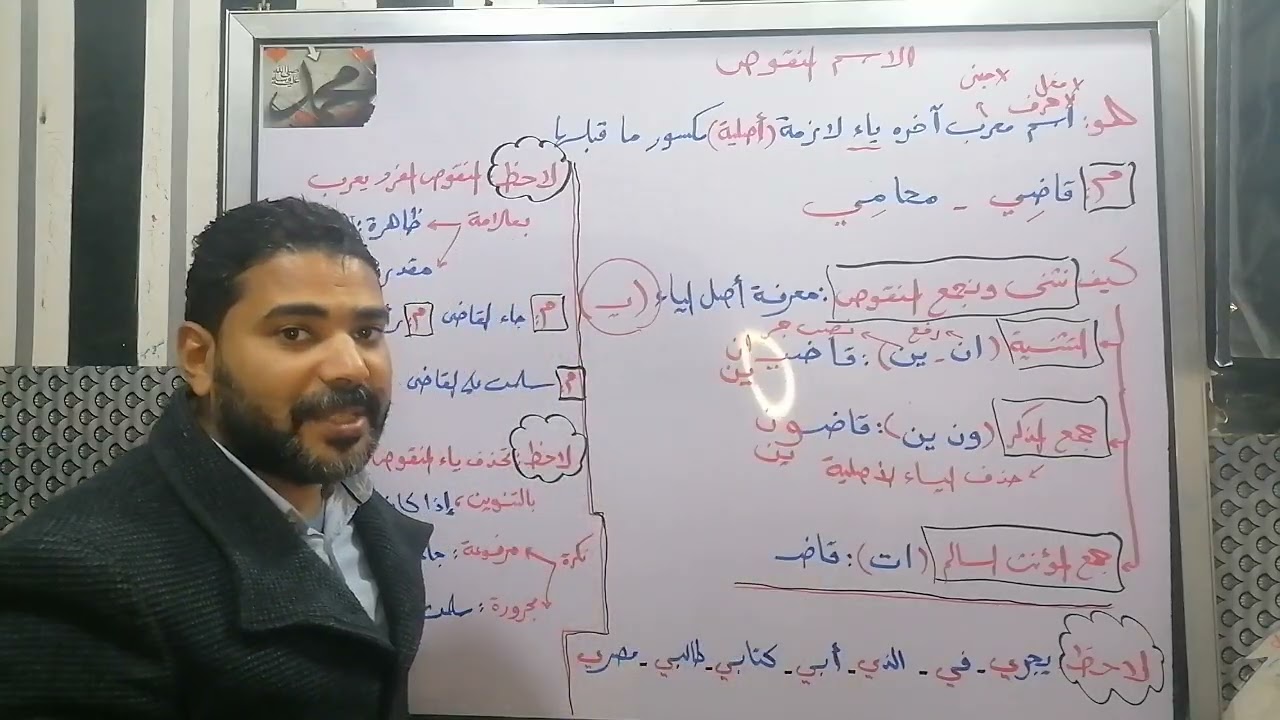 الاسم المنقوص
لا فعل لا حرف لا مبنى
هـو: اسم معرب آخره ياء لازمة (أصلية) مكسور ما قبلها
م: قاضِي - محامِي
كيف نثنى ونجمع المنقوص: معرفة أصل الياء (يـ)
رفع نصب جر
التثنية (ان - ين): قاضيـ ان
ين
جمع المذكر (ون ين): قاضـون
ين
حذف الياء الأصلية
جمع المؤنث السالم (ات): قاضـ
لاحظ يجري - في - الذي - أبي - كتابي - طالبي - مصري
لاحظ المنقوص المفرد يعرب
بعلامة ظاهرة:
مقدر
م: جاء القاضى م:
م: سلمت على القاضى
لاحظ: تحذف ياء المنقوص
بالتنوين، إذا كان
نكرة مرفوعة: جاء
مجرورة: سلمت
محمد